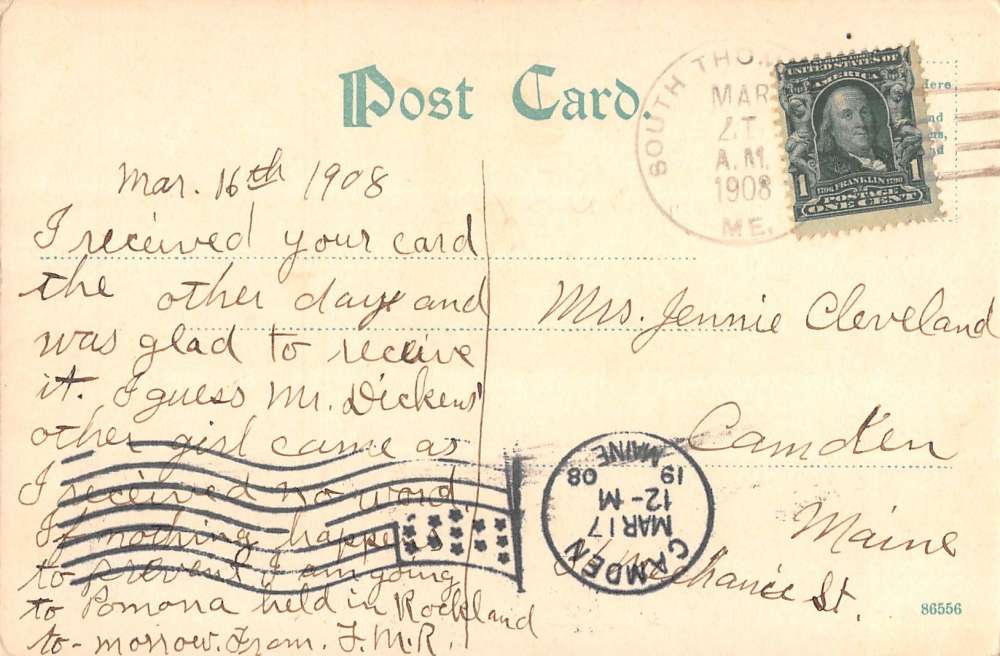 Post Card.
SOUTH THO
MAR
A.M.
1908
ME.
UNITED STATES OF
AMERICA
1 1706 FRANKLIN 1790 1
POSTAGE
ONE CENT
Here
nd
nd
Mar. 16th 1908
I received your card
the other day and
was glad to receive
it. I guess Mr. Dickens'
other girl came as
I received no word.
If nothing happens
to prevent I am going
to Pomona held in Rockland
to-morrow. From. F.M.R.
Mrs. Jennie Cleveland
Camden
Maine
Mechanic St.
CAMDEN
MAR 17
12-M
19 08
MAINE
86556